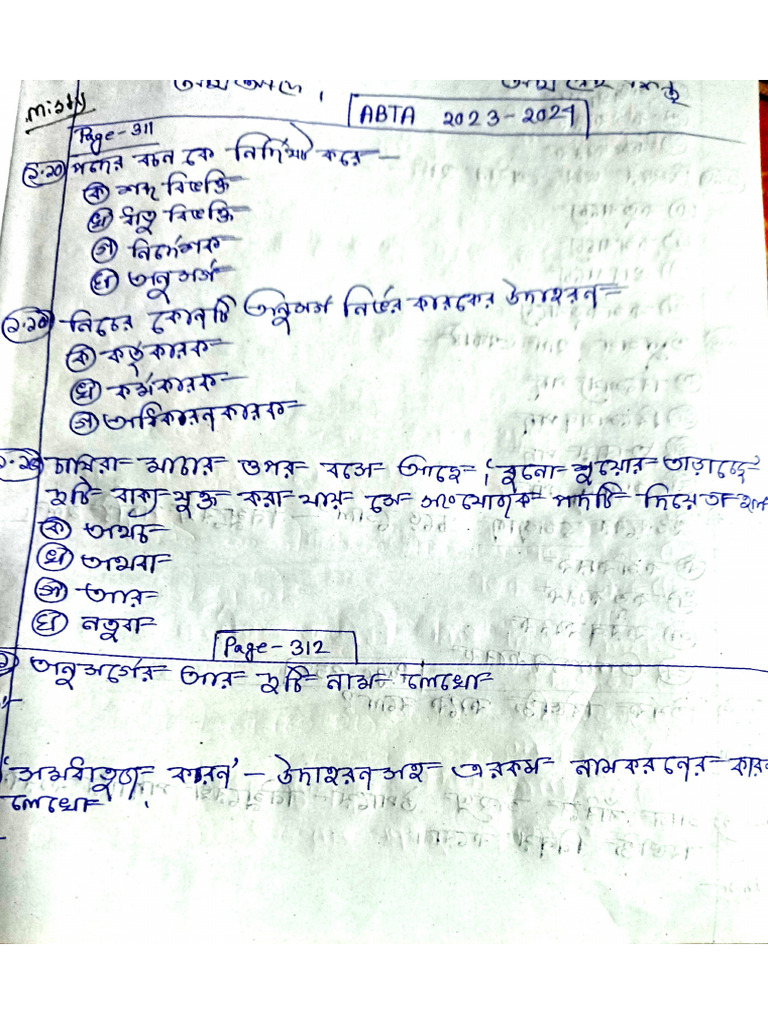 misty
ABTA 2023-2024
Page-311
২.১০ পদের বচন কে নির্দিষ্ট করে -
ক শব্দ বিভক্তি
খ ধাতু বিভক্তি
গ নির্দেশক
ঘ অনুসর্গ
নিচের কোনটি অনুসর্গ নির্ভর কারকের উদাহরন
ক কর্তৃকারক
খ কর্মকারক
গ অধিকরন কারক
চাষিরা মাচার ওপর বসে আছে। বুনো শুয়োর তাড়াচ্ছে
দুটি বাক্য যুক্ত করা যায় যে সংযোজক পদটি দিয়ে তা হল
ক অথচ
খ অথবা
গ আর
ঘ নতুবা
Page-312
অনুসর্গের আর দুটি নাম লেখো
'সমধাতুজ কারন' - উদাহরন সহ এরকম নামকরনের কারন
লেখো।